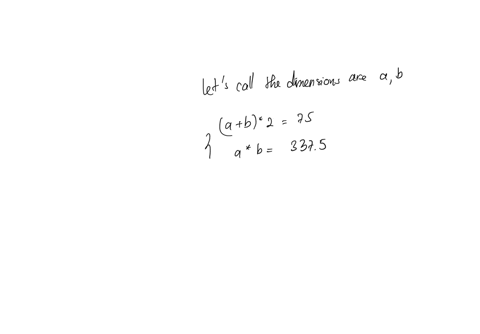 let's call the dimensions are a, b
(a+b)*2 = 75
a * b = 337.5